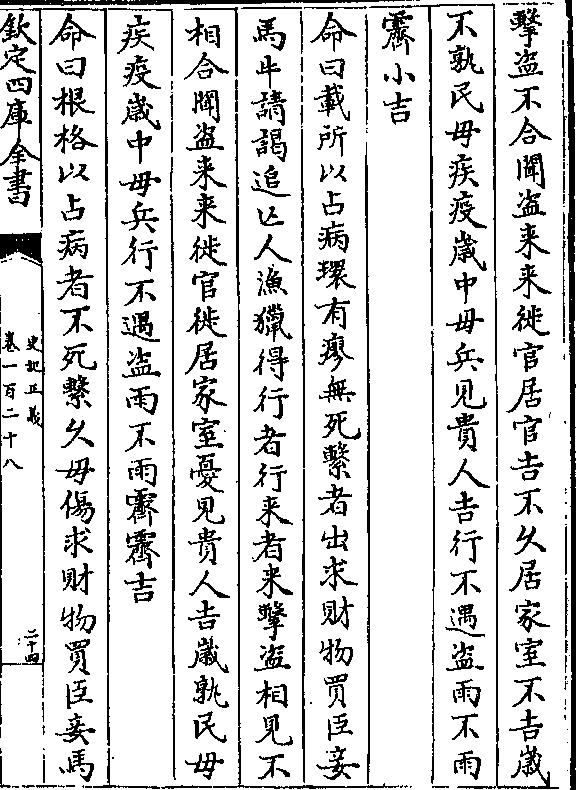 擊盗不合聞盗来来徙官居官吉不久居家室不吉歲
不孰民毋疾疫歲中毋兵見貴人吉行不遇盗雨不雨
霽小吉
命曰載所以占病環有瘳無死繫者出求財物買臣妾
馬牛請謁追亡人漁獵得行者行来者来擊盗相見不
相合聞盗来来徙官徙居家室憂見貴人吉歲孰民毋
疾疫歲中毋兵行不遇盗雨不雨霽霽吉
命曰根格以占病者不死繫久毋傷求財物買臣妾馬
欽定四庫全書
史記正義
卷一百二十八
二十四